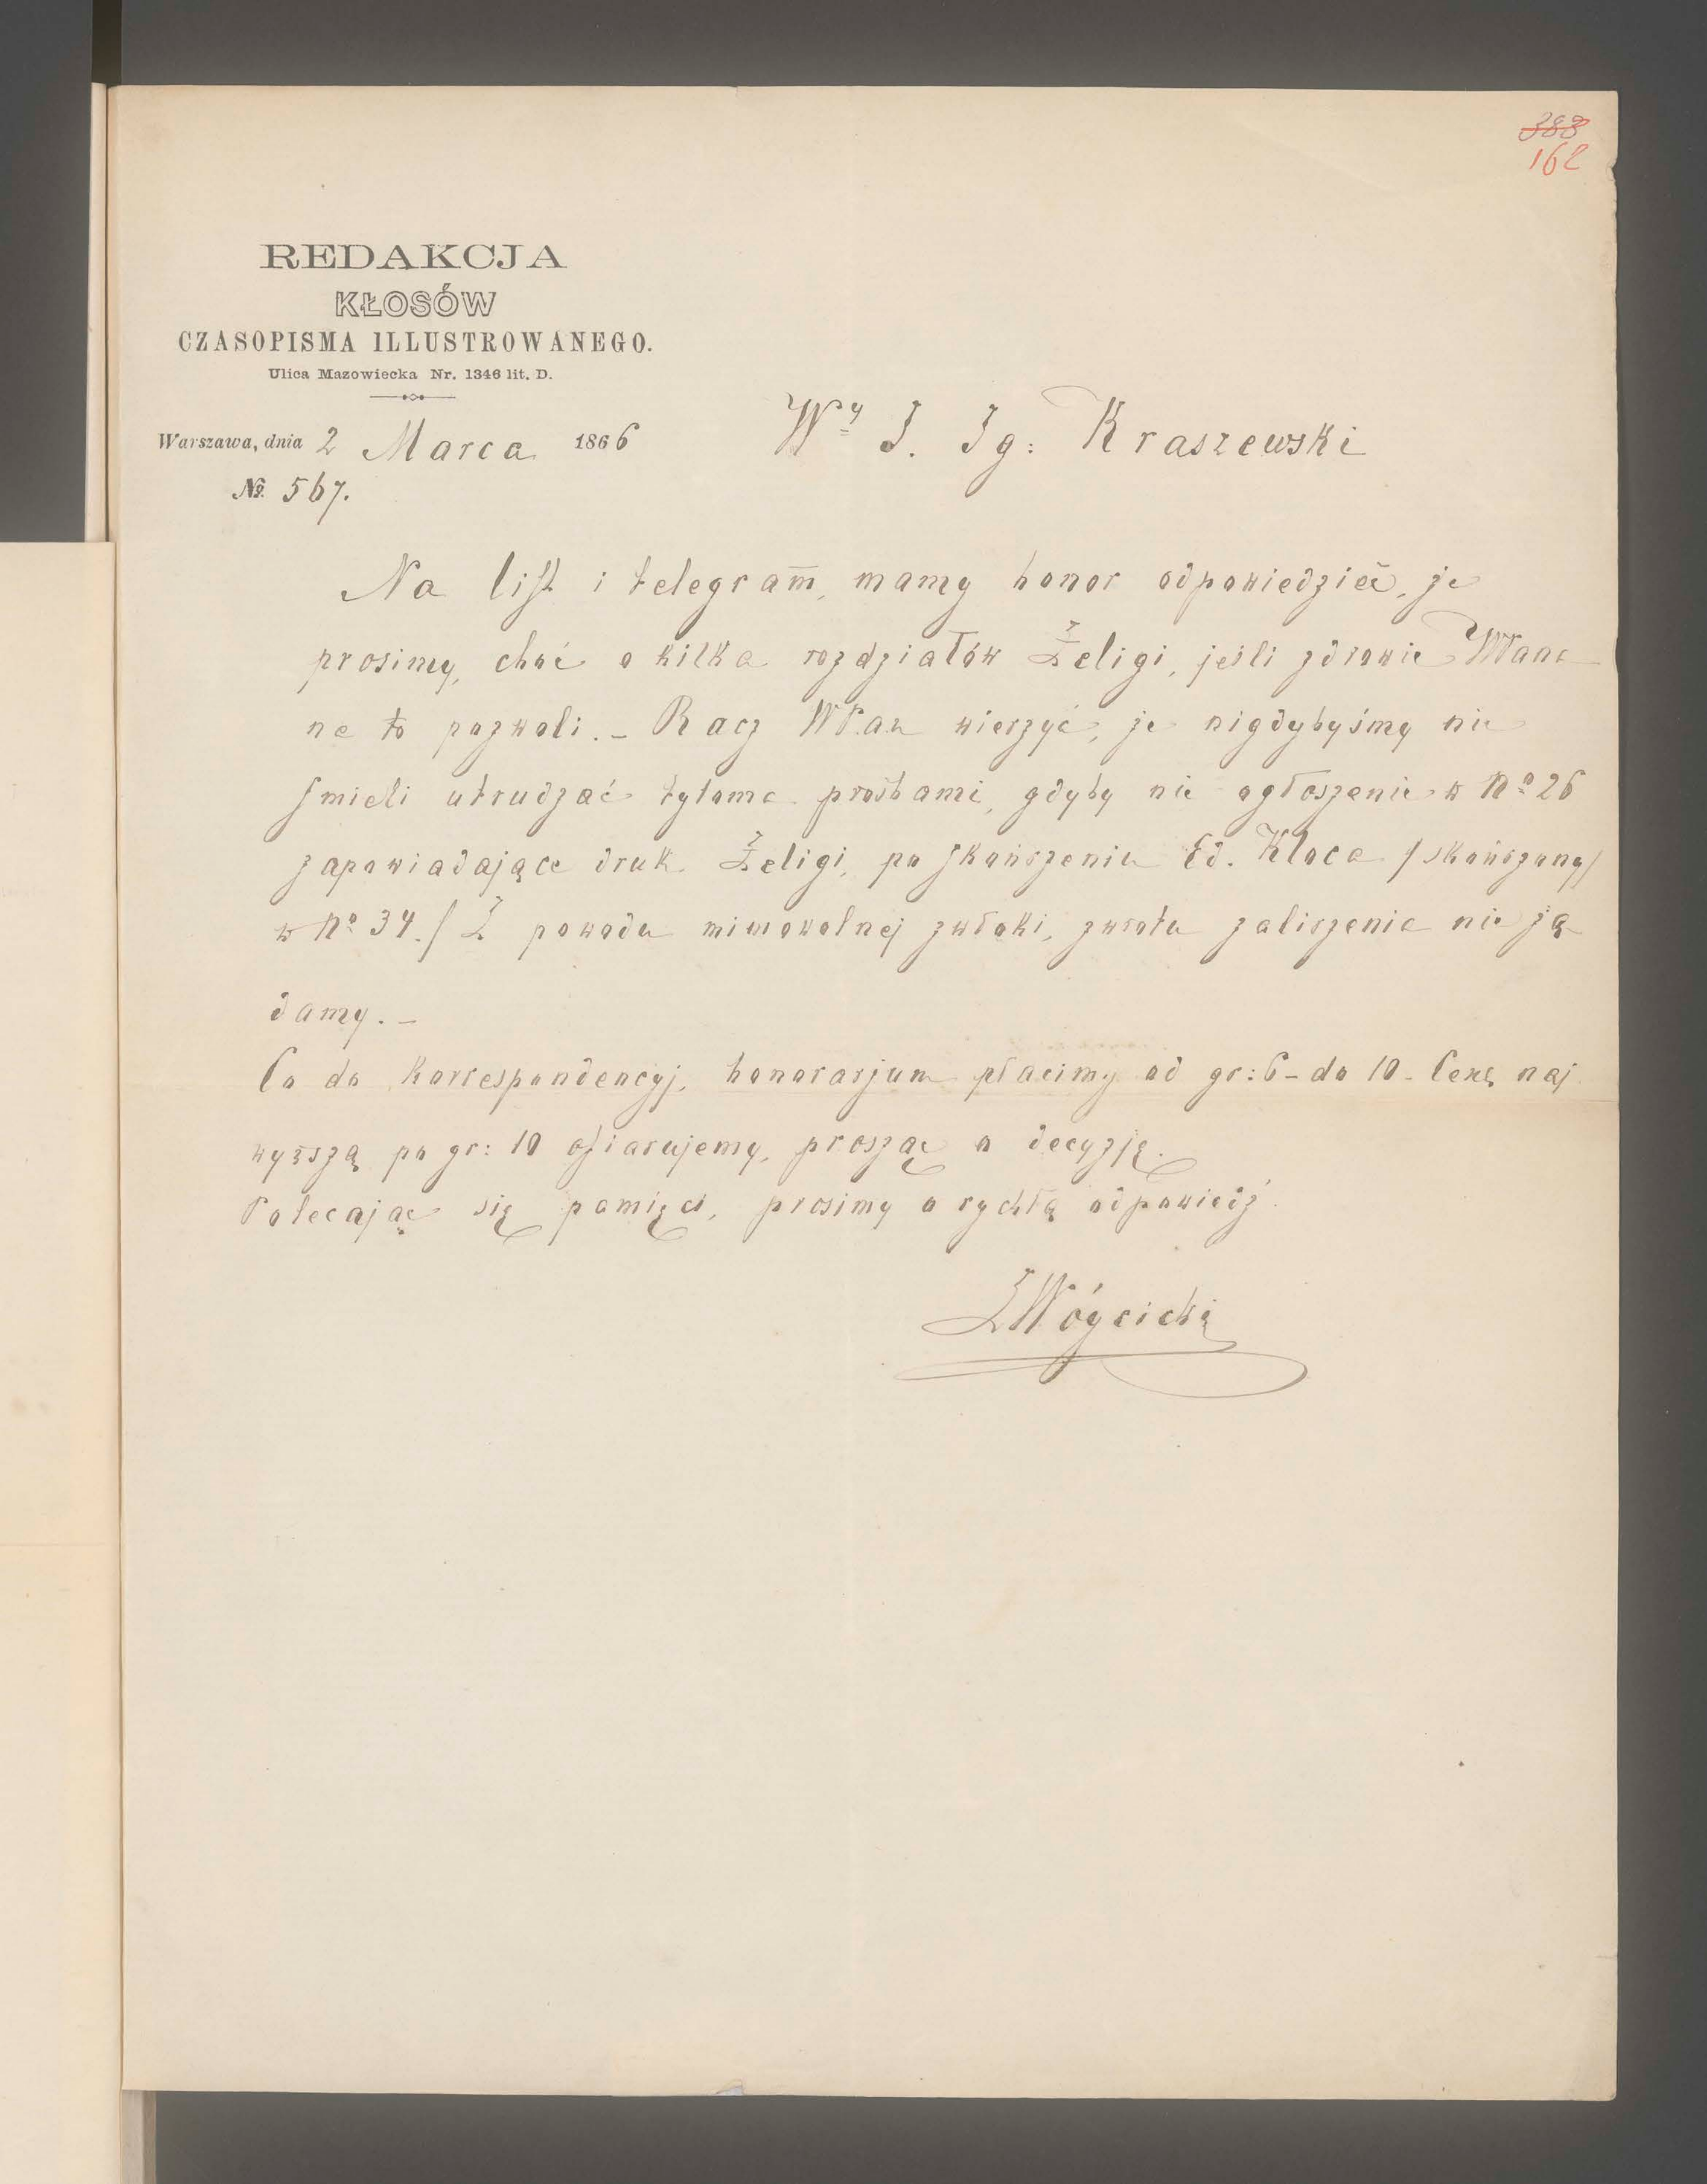 388
162
REDAKCJA
KŁOSÓW
CZASOPISMA ILLUSTROWANEGO.
Ulica Mazowiecka Nr. 1346 lit. D.
Warszawa, dnia 2 Marca 1866
Wy J. Ig: Kraszewski
No. 567.
Na list i telegram, mamy honor odpowiedzieć, że
prosimy, choć o kilka rozdziałów Żeligi, jeśli zdrowie
na to pozwoli. – Racz wierzyć, że nigdybyśmy nie
śmieli utrudzać tyloma prośbami, gdyby nie ogłoszenie w No 26
zapowiadające druk Żeligi, po skończeniu Ed. Kloca /skończony/
w No 34./ Z powodu mimowolnej zwłoki, zwrotu zaliczenia nie żą
damy. –
Co do Korrespondencyj, honorarjum płacimy od gr: 6 – do 10 – Cenę naj
wyższą po gr: 10 ofiarujemy, prosząc o decyzję.
Polecając się pamięci, prosimy o rychłą odpowiedź.
KWóycicki